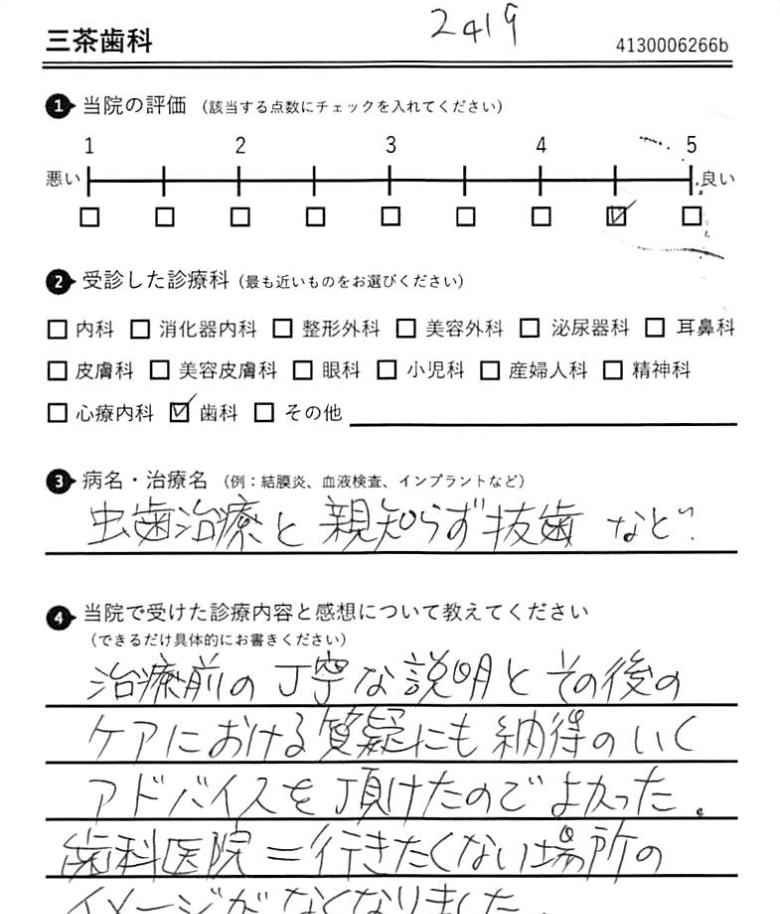 2419
三茶歯科
4130006266b
1 当院の評価 (該当する点数にチェックを入れてください)
1 2 3 4 5
悪い 良い
2 受診した診療科 (最も近いものをお選びください)
内科 消化器内科 整形外科 美容外科 泌尿器科 耳鼻科
皮膚科 美容皮膚科 眼科 小児科 産婦人科 精神科
心療内科 歯科 その他
3 病名・治療名 (例：結膜炎、血液検査、インプラントなど)
虫歯治療と親知らず抜歯 など
4 当院で受けた診療内容と感想について教えてください
(できるだけ具体的にお書きください)
治療前の丁寧な説明とその後の
ケアにおける質疑にも納得のいく
アドバイスを頂けたのでよかった。
歯科医院=行きたくない場所の
イメージがなくなりました。